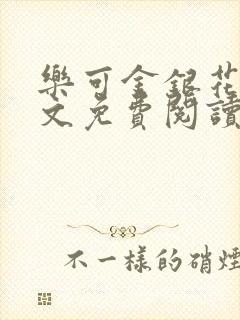 樂可金銀花
文免費閱讀
不一樣的硝煙